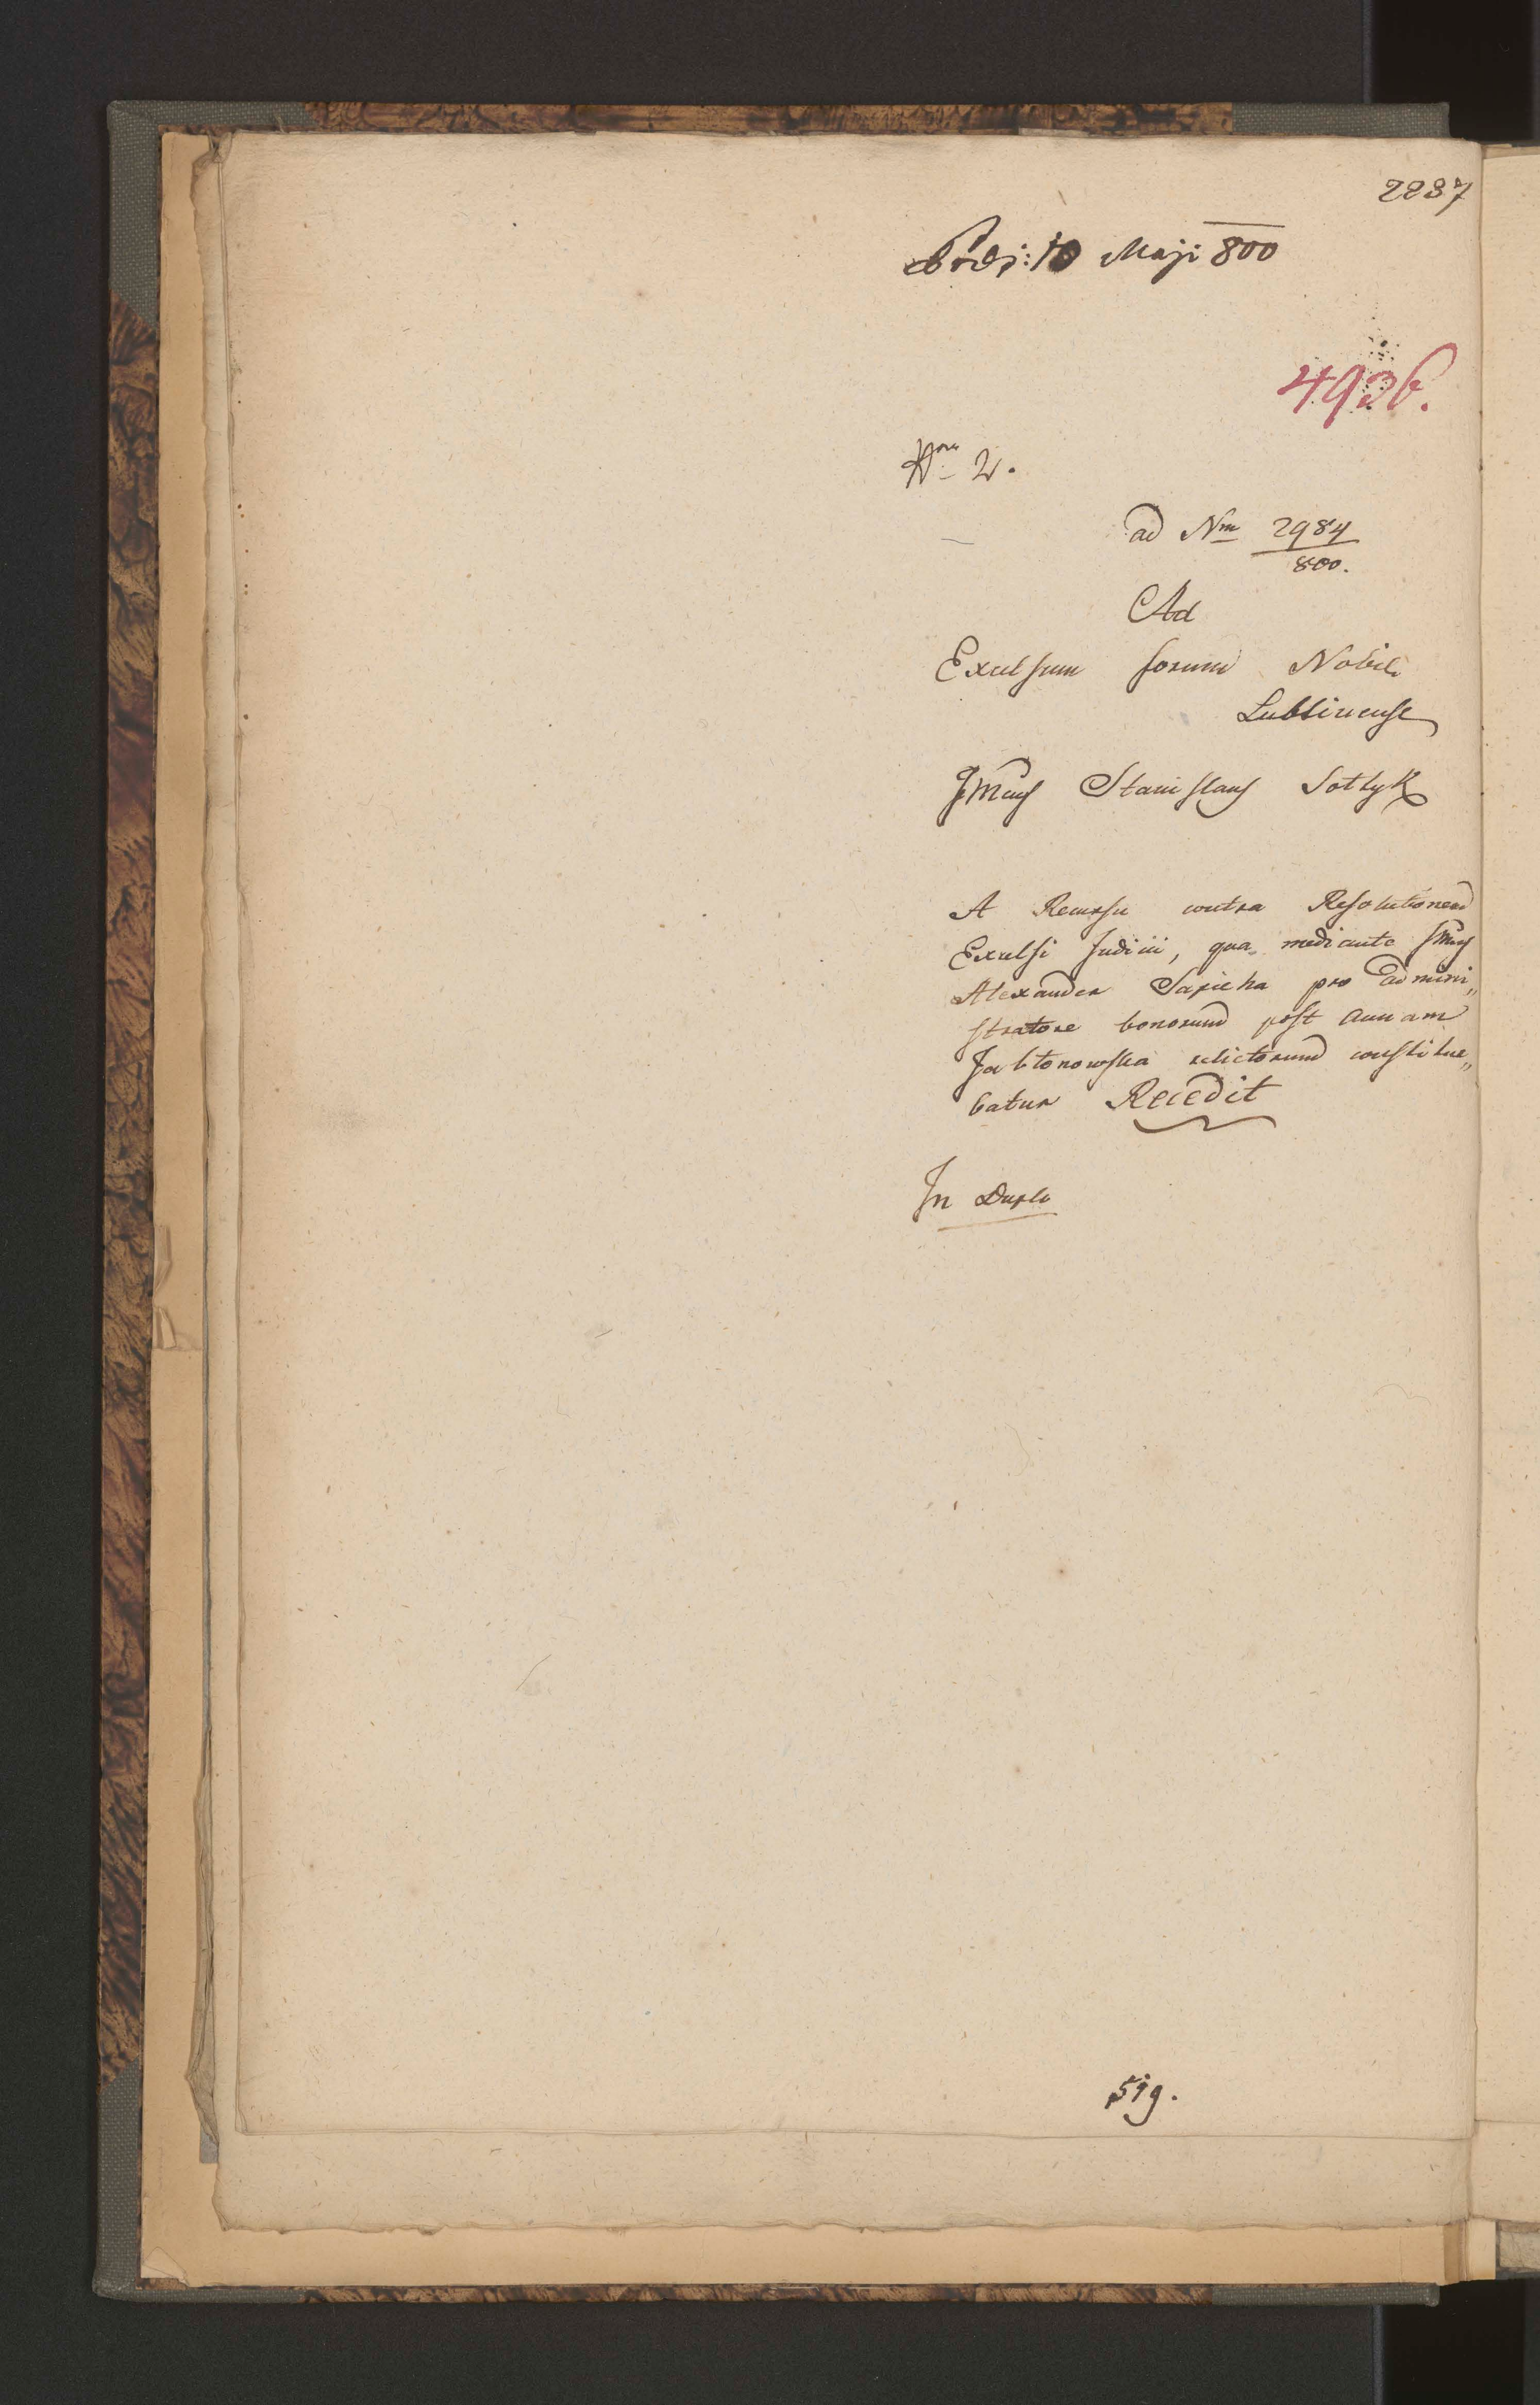 2237
Prds: 10 Maji 800
4936.
Nrus 2.
ad Nm 2984
800.
Ad
Excelsum forum Nobile
Lublinense
Illmus Stanislaus Sołtyk
A Recursu contra Resolutionem
Excelsi Judicii, qua mediante Illmus
Alexander Sapieha pro admini„
stratore bonorum post Annam
Jabłonowska relictorum constitue„
batur Recedit
In Duplo
519.